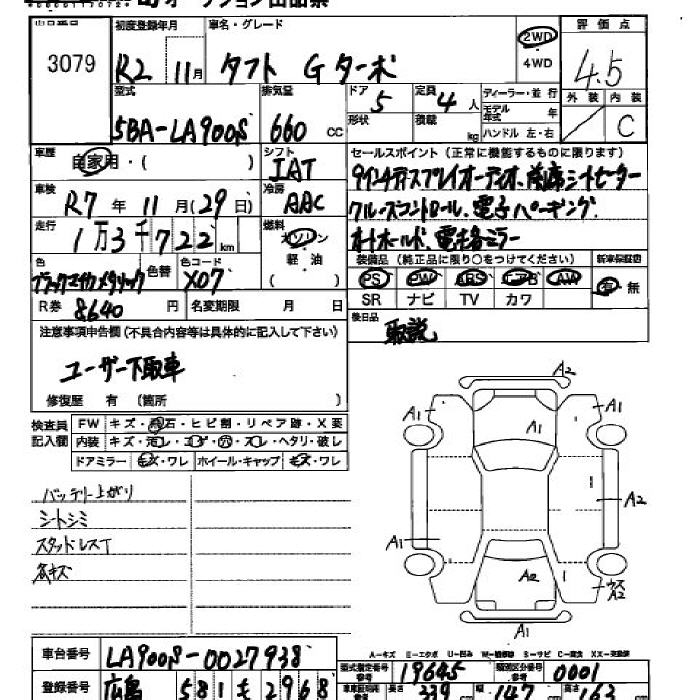 オークション出品票
3079
初度登録年月 車名・グレード
R2 11月 タフト Gターボ
2WD
4WD
評価点
4.5
型式 排気量 ドア 定員
5BA-LA900S 660 CC 5 4人
形状 積載 kg
ディーラー・並行
モデル年式 年
ハンドル 左・右
外装 内装
C
車歴 自家用・( )
シフト IAT
車検 R7年 11月(29日)
冷房 AAC
走行 1万3千722km
燃料 ガソリン
軽油
( )
色 色替 色コード
X07
R券 8640円 名変期限 月 日
セールスポイント(正常に機能するものに限ります)
9インチディスプレイオーディオ、前席シートヒーター
クルーズコントロール、電子パーキング、
オートホールド、電格ミラー
装備品(純正品に限り○をつけてください) 新車保証書
PS PW ABS エアB AW 有・無
SR ナビ TV カワ
後日品
取説
注意事項申告欄(不具合内容等は具体的に記入して下さい)
ユーザー下取車
修復歴 有 (箇所 )
検査員記入欄
FW キズ・飛石・ヒビ割・リペア跡・X要
内装 キズ・汚レ・コゲ・穴・スレ・ヘタリ・破レ
ドアミラー キズ・ワレ ホイール・キャップ キズ・ワレ
バッテリー上がり
シートシミ
スタッドレスT
各キズ
A2
A1 A1
A1
A2
A1
A2 ウスA2
A1
A-キズ E-エクボ U-凹み W-補修跡 S-サビ C-腐食 XX-交換済
車台番号 LA900S-0027938
型式指定番号 参考 19645 類別区分番号 参考 0001
登録番号 広島 581 も 2968
長さ 339 幅 147 高さ 163